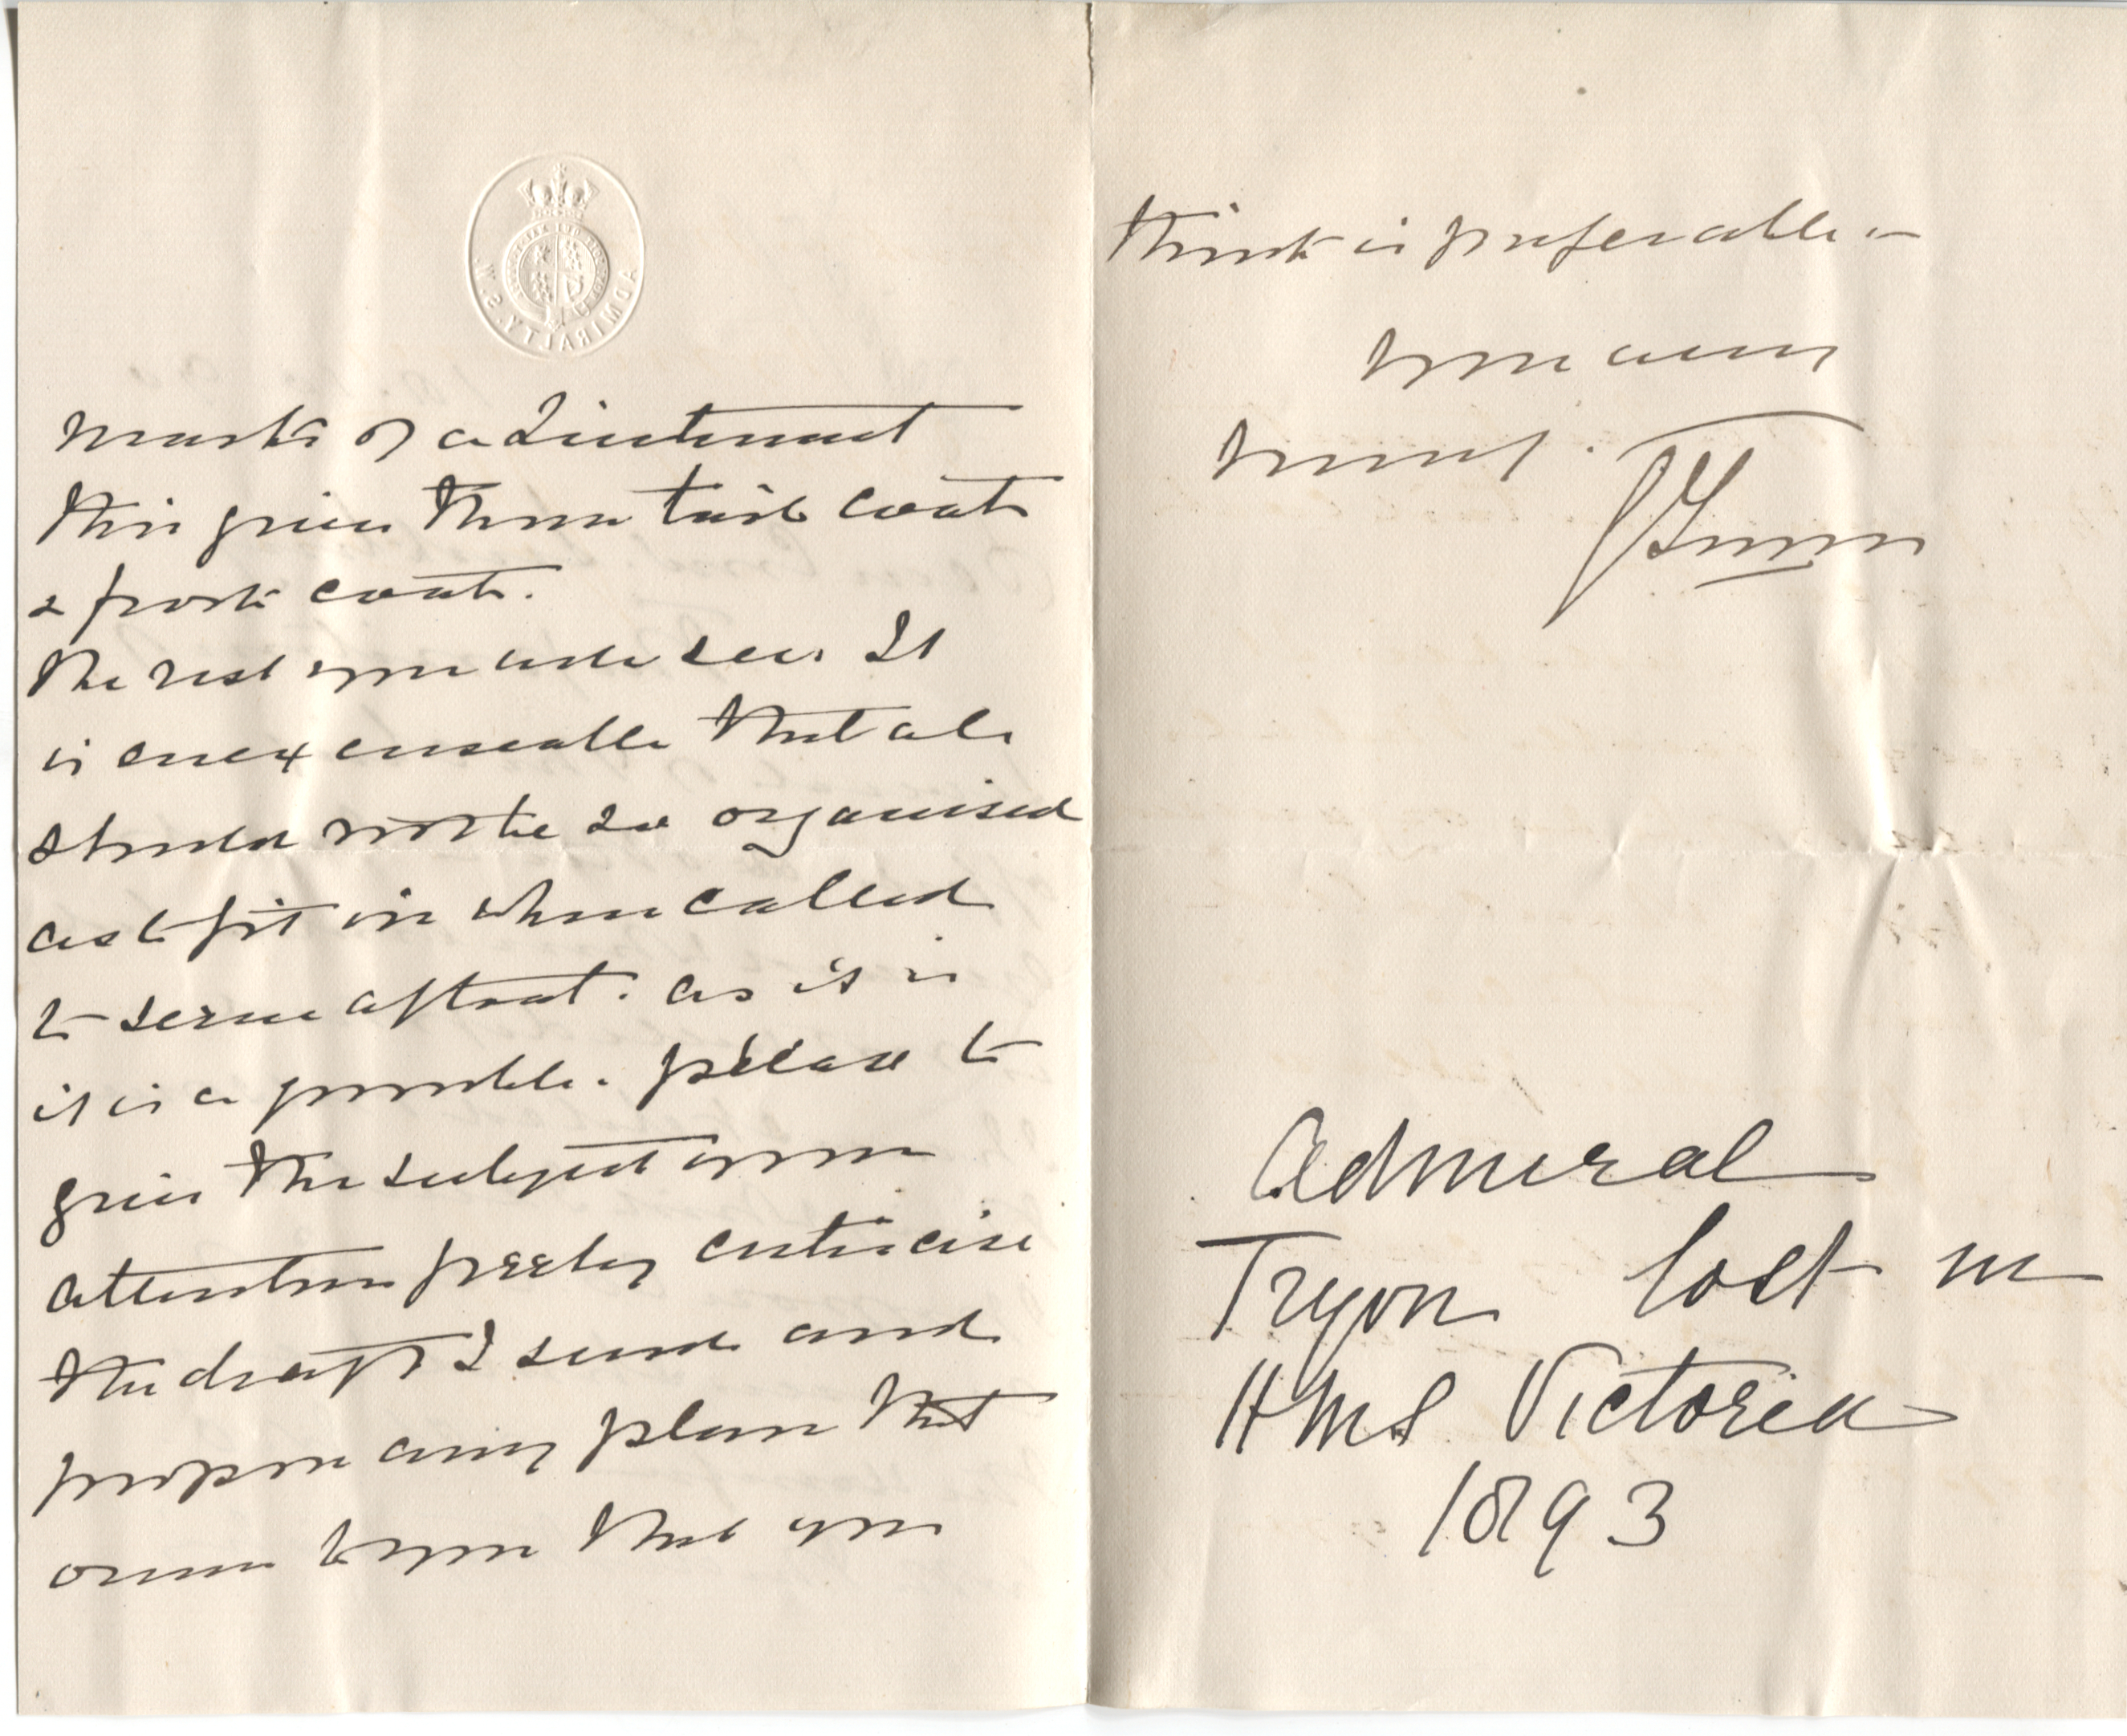 ADMIRALTY. S.W.
marks of a Lieutenant
this gives them tail coats
& frock coats.
The rest you will see. It
is inexcusable that all
should not be so organised
as to fit in when called
to serve afloat. as it is
it is a possible. please to
give the subject your
attention freely criticise
the draft I send and
propose any plan that
occurs to you that you
think is preferable -
yours very
truly.
GTryon
Admiral
Tryon lost in
HMS Victoria
1893